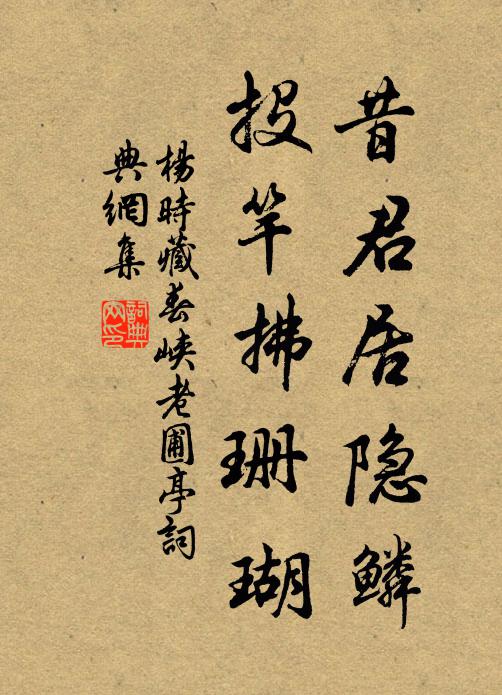 昔君居隐鳞
投竿拂珊瑚
楊時藏春峽老圃亭詞
典網集
詞典网印